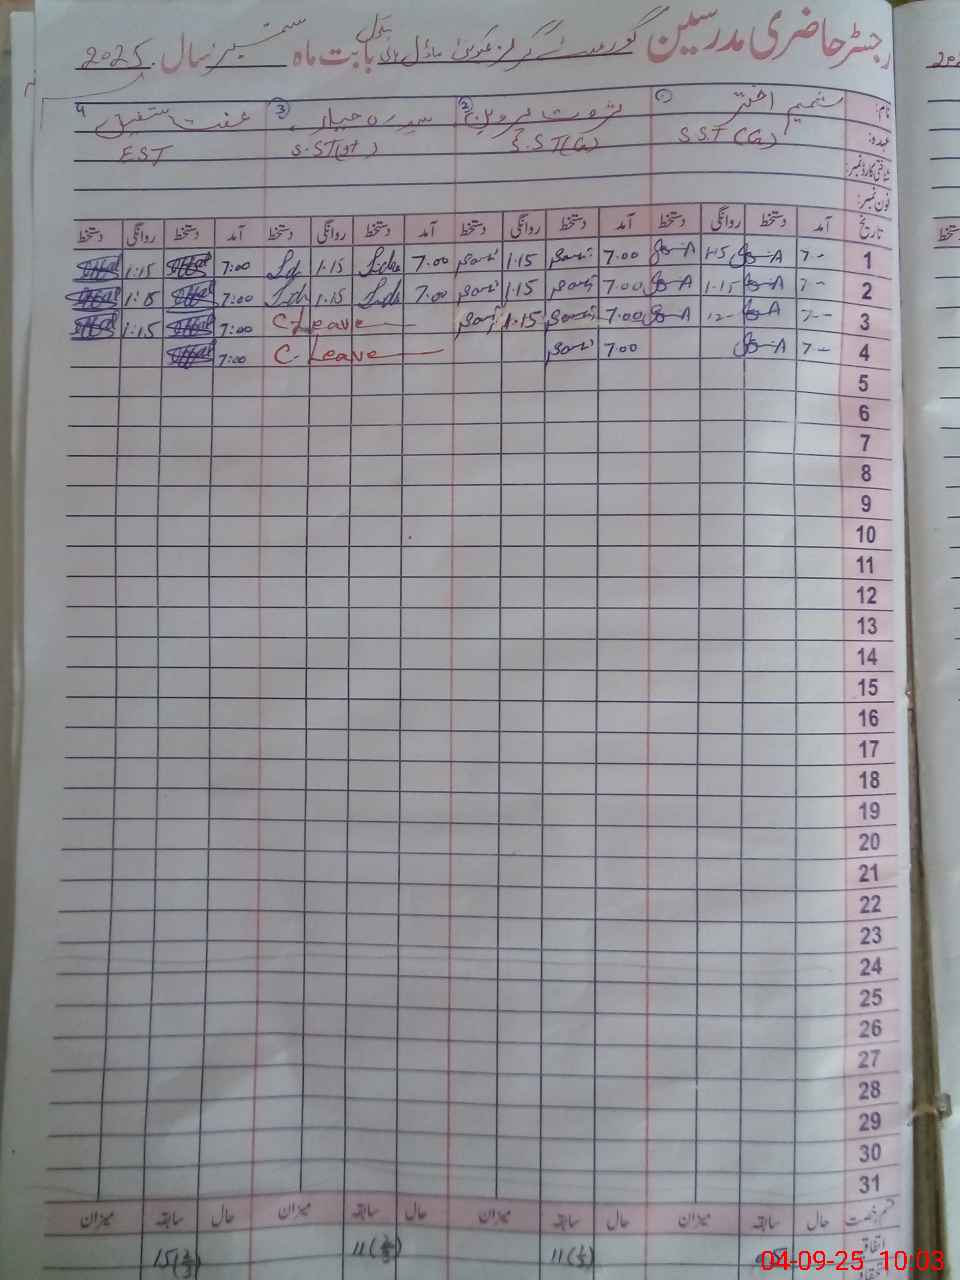 رجسٹر حاضری مدرسین گورنمنٹ گرلز ماڈل ہائی بابت ماہ ستمبر سال 2025
نام: ① شمیم اختر ② ثروت پروین ③ سدرہ ④ عفت
عہدہ: SST (G) S.ST(G) S.ST(H) EST
شناختی کارڈ نمبر:
فون نمبر:
تاریخ آمد دستخط روانگی دستخط آمد دستخط روانگی دستخط آمد دستخط روانگی دستخط آمد دستخط روانگی دستخط
1 7-- 1-15 7.00 1.15 7.00 1.15 7:00 1:15
2 7-- 1.15 7.00 1.15 7.00 1.15 7:00 1:15
3 7-- 12- 7.00 1.15 C-Leave 7:00 1:15
4 7-- 7.00 C. Leave 7:00
5
6
7
8
9
10
11
12
13
14
15
16
17
18
19
20
21
22
23
24
25
26
27
28
29
30
31
قسم رخصت حال سابقہ میزان حال سابقہ میزان حال سابقہ میزان حال سابقہ میزان
اتفاقیہ
04-09-25 10:03